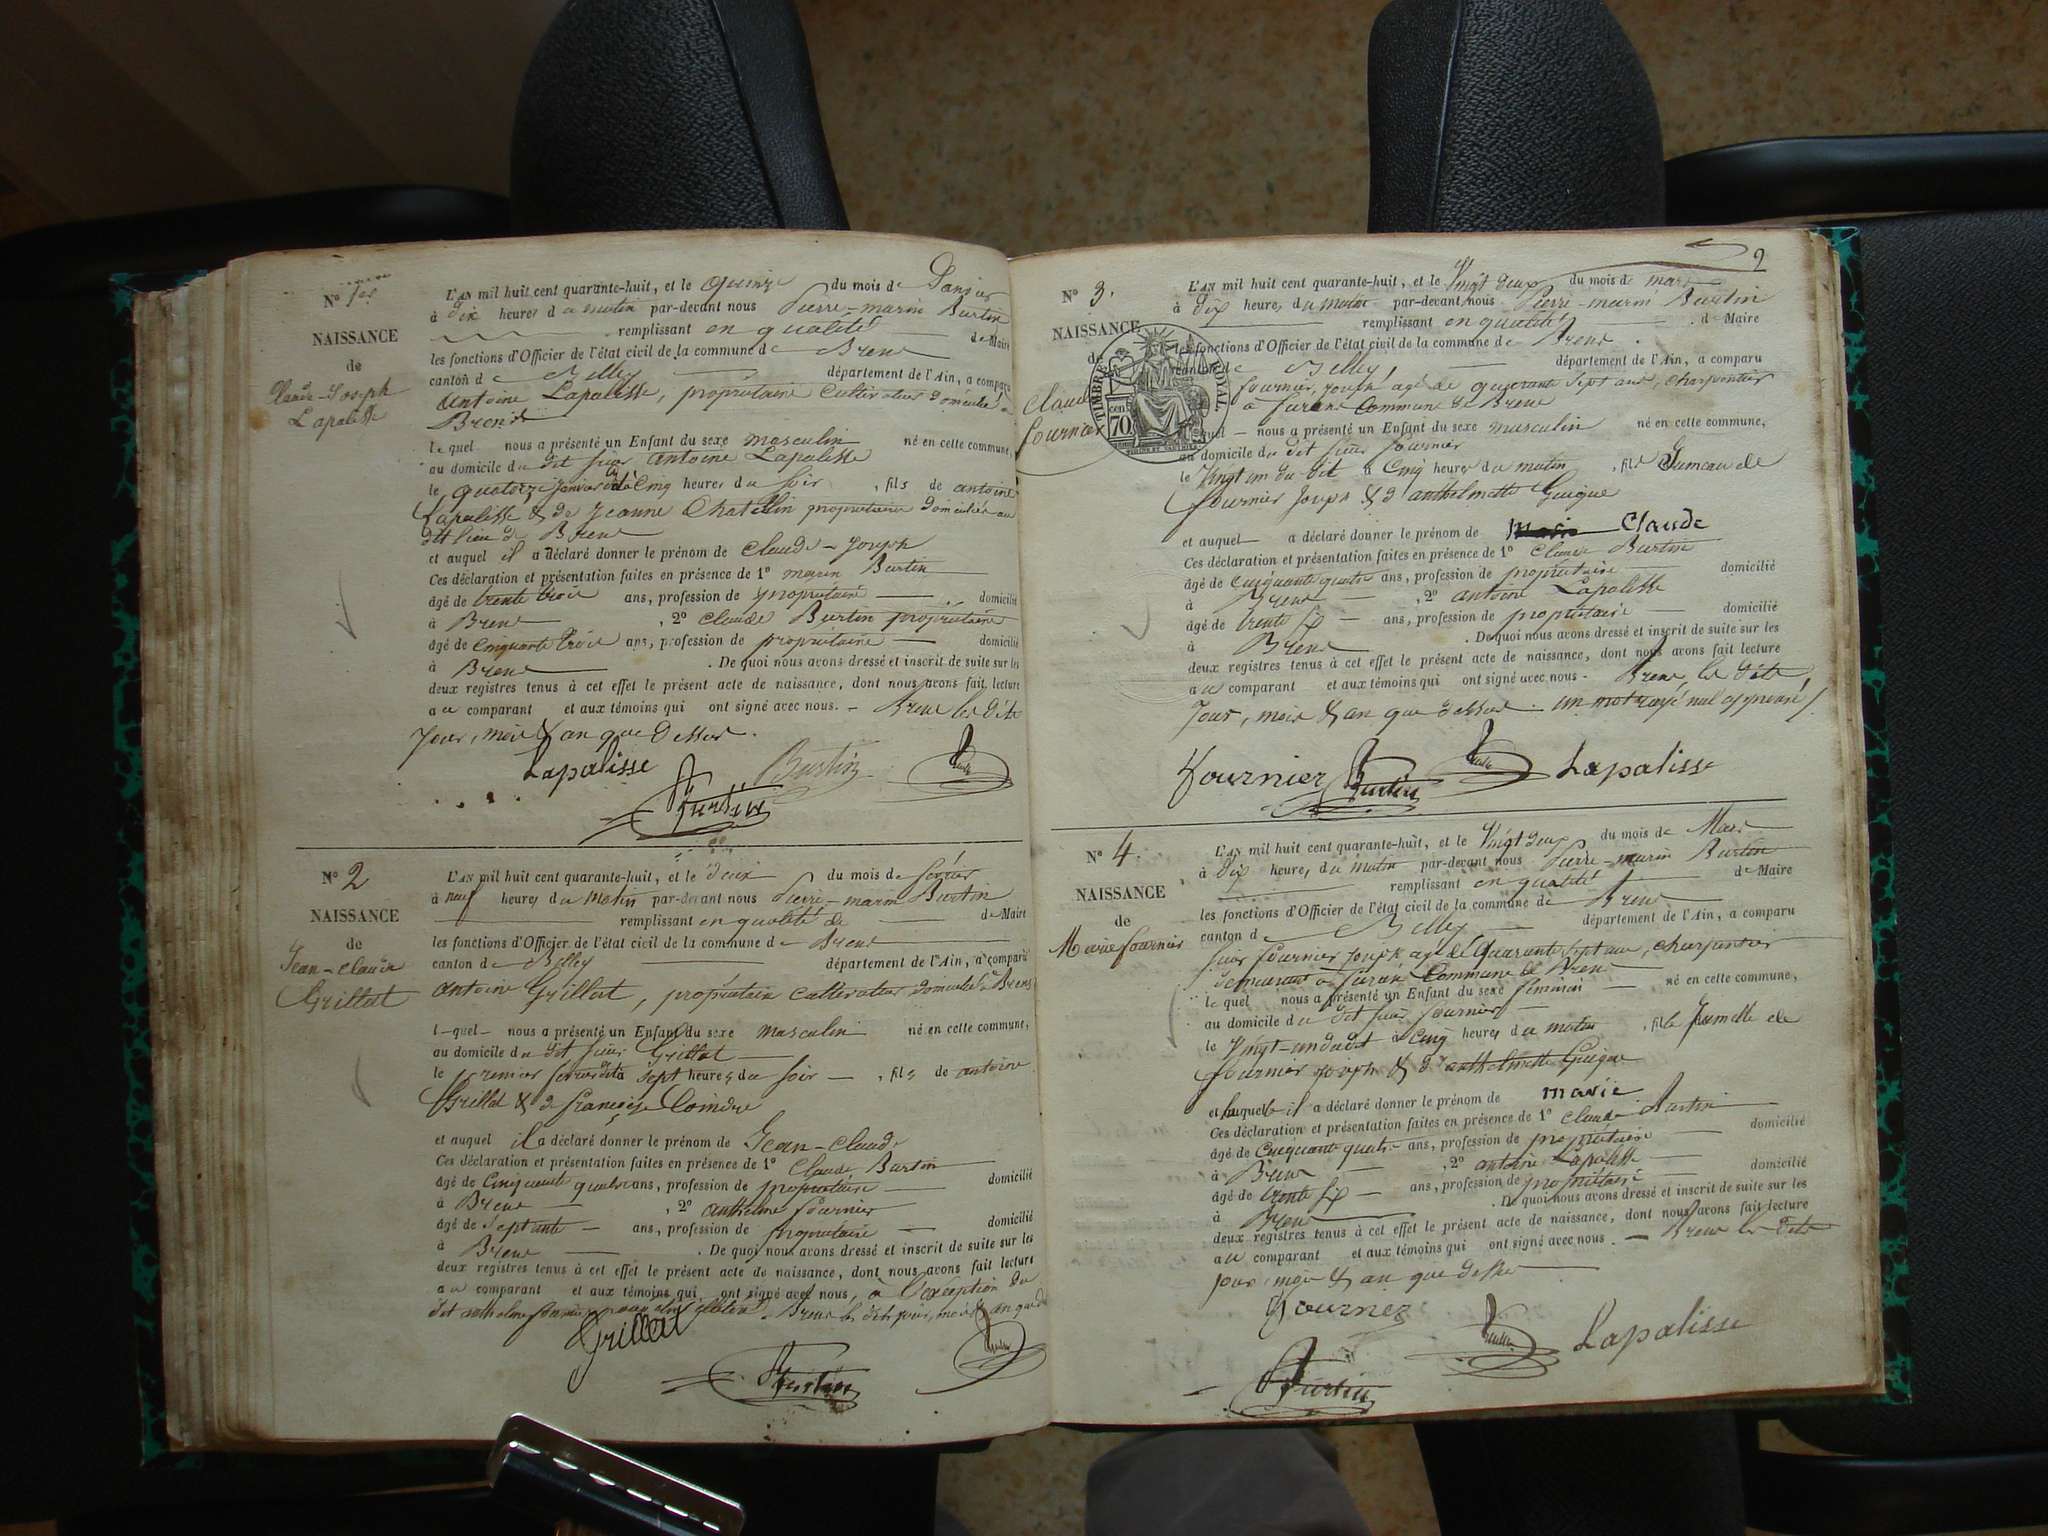 N° 1er
NAISSANCE
de
Claude-Joseph
Lapalisse
L'AN mil huit cent quarante-huit, et le quinze du mois de Janvier
à dix heures du matin par-devant nous Pierre-marin Burtin
remplissant en qualité de Maire
les fonctions d'Officier de l'état civil de la commune de Brens
canton de Belley département de l'Ain, a comparu
antoine Lapalisse, propriétaire Cultivateur domicilié à
Brens
le quel nous a présenté un Enfant du sexe masculin né en cette commune,
au domicile du dit sieur antoine Lapalisse
le quatorze janvier à Cinq heures du soir, fils de antoine
Lapalisse & de Jeanne Chatillin propriétaires domiciliés au
dit lieu de Brens
et auquel il a déclaré donner le prénom de Claude-Joseph
Ces déclaration et présentation faites en présence de 1° marin Burtin
âgé de trente trois ans, profession de propriétaire domicilié
à Brens, 2° Claude Burtin propriétaire
âgé de Cinquante trois ans, profession de propriétaire domicilié
à Brens. De quoi nous avons dressé et inscrit de suite sur les
deux registres tenus à cet effet le présent acte de naissance, dont nous avons fait lecture
au comparant et aux témoins qui ont signé avec nous. - Brens les dits
Jour, mois & an que dessus.
Lapalisse Burtin
Burtin
N° 2
NAISSANCE
de
Jean-Claude
Grillat
L'AN mil huit cent quarante-huit, et le deux du mois de février
à neuf heures du matin par-devant nous Pierre-marin Burtin
remplissant en qualité de de Maire
les fonctions d'Officier de l'état civil de la commune de Brens
canton de Belley département de l'Ain, a comparu
antoine Grillat, propriétaire cultivateur domicilié à Brens
lequel nous a présenté un Enfant du sexe masculin né en cette commune,
au domicile du dit sieur Grillat
le premier février à sept heures du soir, fils de antoine
Grillat & de françoise Coindre
et auquel il a déclaré donner le prénom de Jean-Claude
Ces déclaration et présentation faites en présence de 1° Claude Burtin
âgé de Cinquante quatre ans, profession de propriétaire domicilié
à Brens, 2° anthelme fournier
âgé de Septante ans, profession de propriétaire domicilié
à Brens. De quoi nous avons dressé et inscrit de suite sur les
deux registres tenus à cet effet le présent acte de naissance, dont nous avons fait lecture
au comparant et aux témoins qui ont signé avec nous, à l'exception du
dit anthelme fournier pour être illitéré. Brens les dits jour, mois & an que
Grillat
Burtin
2
N° 3.
NAISSANCE
de
Claude
fournier
TIMBRE ROYAL
cen 70
L'AN mil huit cent quarante-huit, et le Vingt deux du mois de mars
à dix heures du matin par-devant nous Pierre-marin Burtin
remplissant en qualité de Maire
les fonctions d'Officier de l'état civil de la commune de Brens.
canton de Belley département de l'Ain, a comparu
fournier, joseph âgé de quarante sept ans, charpentier
à Commune de Brens
lequel nous a présenté un Enfant du sexe masculin né en cette commune,
au domicile du dit sieur fournier
le Vingt un du dit à Cinq heures du matin, fils Jumeau de
fournier Joseph & d'anthelmette Guigue
et auquel a déclaré donner le prénom de Marie Claude
Ces déclaration et présentation faites en présence de 1° Claude Burtin
âgé de Cinquante quatre ans, profession de propriétaire domicilié
à Brens, 2° antoine Lapalisse
âgé de trente six ans, profession de propriétaire domicilié
à Brens. De quoi nous avons dressé et inscrit de suite sur les
deux registres tenus à cet effet le présent acte de naissance, dont nous avons fait lecture
au comparant et aux témoins qui ont signé avec nous - Brens les dits,
Jour, mois & an que dessus. un mot rayé nul approuvé
fournier Burtin Lapalisse
N° 4.
NAISSANCE
de
Marie fournier
L'AN mil huit cent quarante-huit, et le Vingt deux du mois de Mars
à dix heures du matin par-devant nous Pierre-marin Burtin
remplissant en qualité de Maire
les fonctions d'Officier de l'état civil de la commune de Brens
canton de Belley département de l'Ain, a comparu
sieur fournier joseph agé de quarante sept ans, charpentier
demeurant à Commune de Brens
le quel nous a présenté un Enfant du sexe féminin né en cette commune,
au domicile du dit sieur fournier
le Vingt-un dudit à Cinq heures du matin, fille Jumelle de
fournier joseph & d'anthelmette Guigue
et laquelle il a déclaré donner le prénom de marie
Ces déclaration et présentation faites en présence de 1° Claude Burtin
âgé de Cinquante quatre ans, profession de propriétaire domicilié
à Brens, 2° antoine Lapalisse
âgé de trente six ans, profession de propriétaire domicilié
à Brens. De quoi nous avons dressé et inscrit de suite sur les
deux registres tenus à cet effet le présent acte de naissance, dont nous avons fait lecture
au comparant et aux témoins qui ont signé avec nous. - Brens les dits
jour, mois & an que dessus
fournier Lapalisse
Burtin